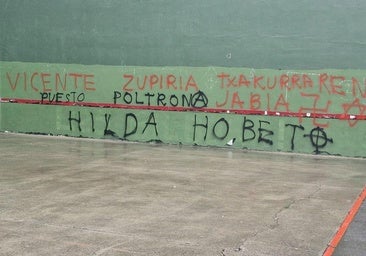 VICENTE ZUPIRIA TXAKURRAREN
PUESTO POLTRONA JABIA
HILDA HO.BETO